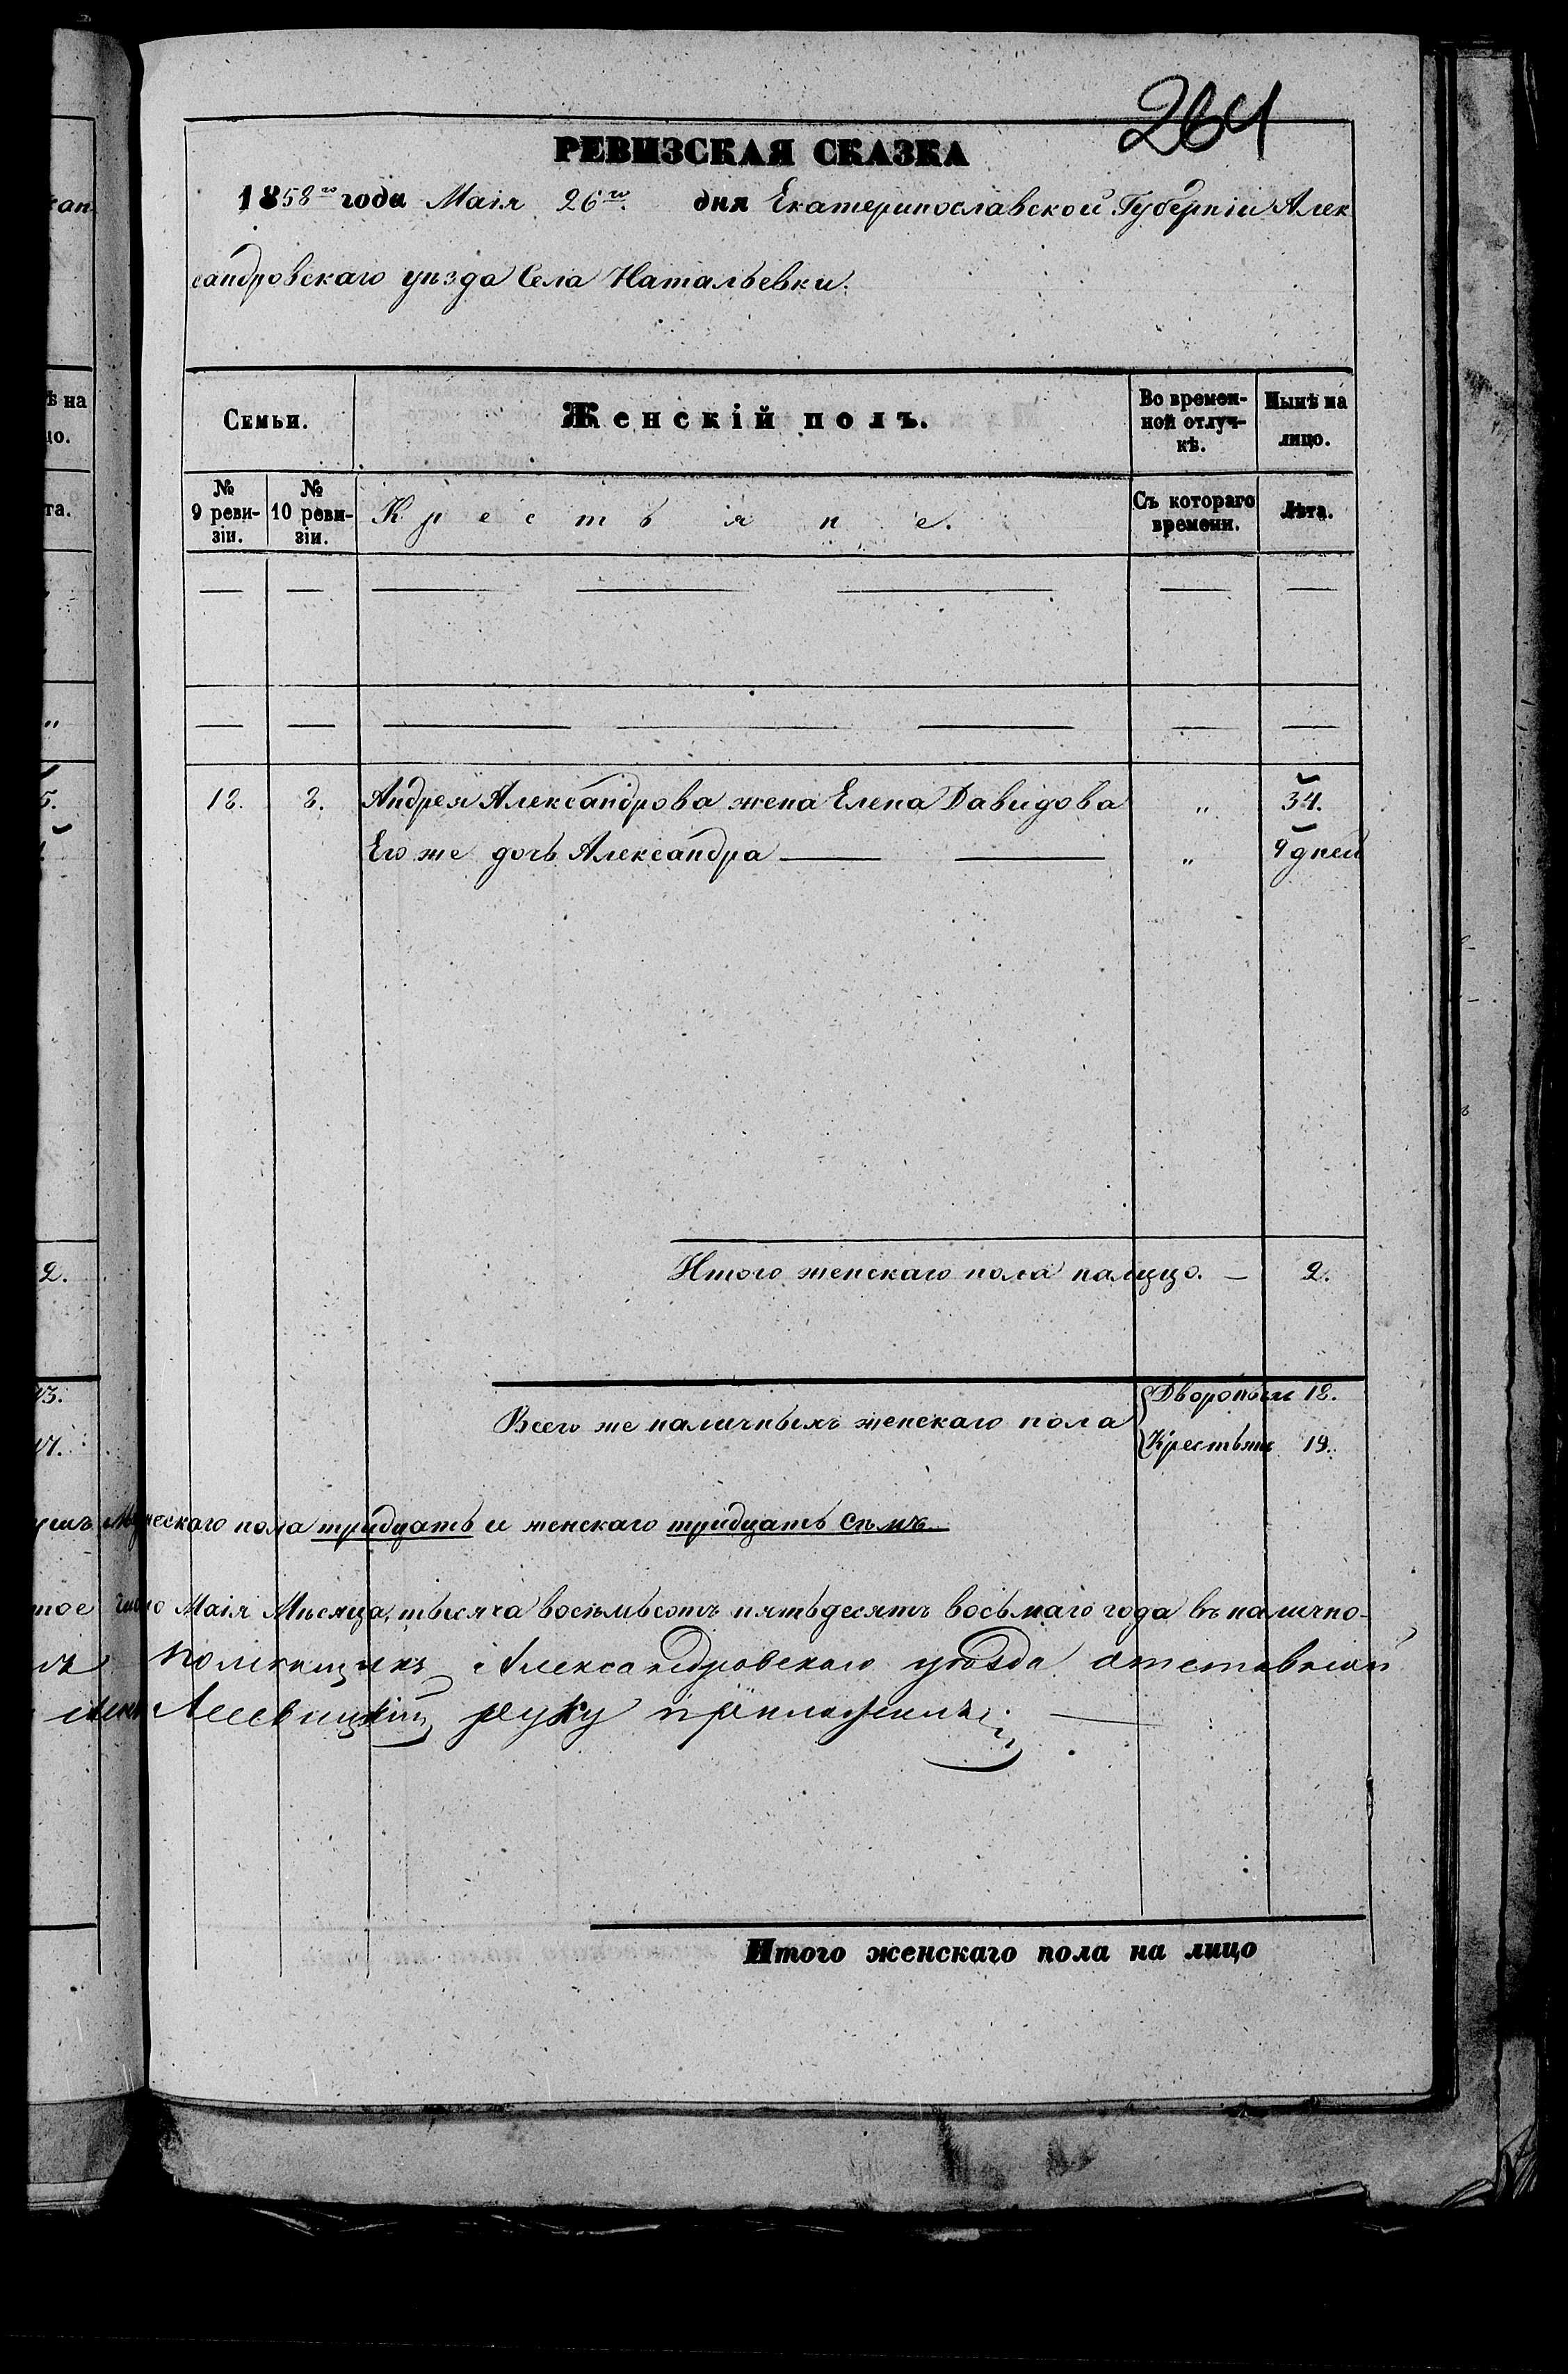 264
РЕВИЗСКАЯ СКАЗКА
1858го года Маія 26го. дня Екатеринославской Губерніи Алек
сандровскаго уѣзда Села Натальевки.
Семьи. Женскій полъ. Во времен- Нынѣ на
ной отлуч- лицо.
кѣ.
№ № Крестьяне. Съ котораго Лѣта.
9 реви- 10 реви- времени.
зіи. зіи.
18. 8. Андрея Александрова жена Елена Давидова „ 34.
Его же дочь Александра „ 9 дней
Итого женскаго пола налицо. — 2.
Всего же наличныхъ женскаго пола
Дворовыхъ 18.
Крестьянъ 19.
Мужескаго пола тридцать и женскаго тридцать сѣмъ.
тое число Маія Мѣсяца, тысяча восѣмьсотъ пятьдесятъ восьмаго года въ налично-
помѣщикъ Александровскаго уѣзда отставной
Лесевицкій руку приложилъ
Итого женскаго пола на лицо
ѣ на
цо.
та.
5.
2.
13.
17.